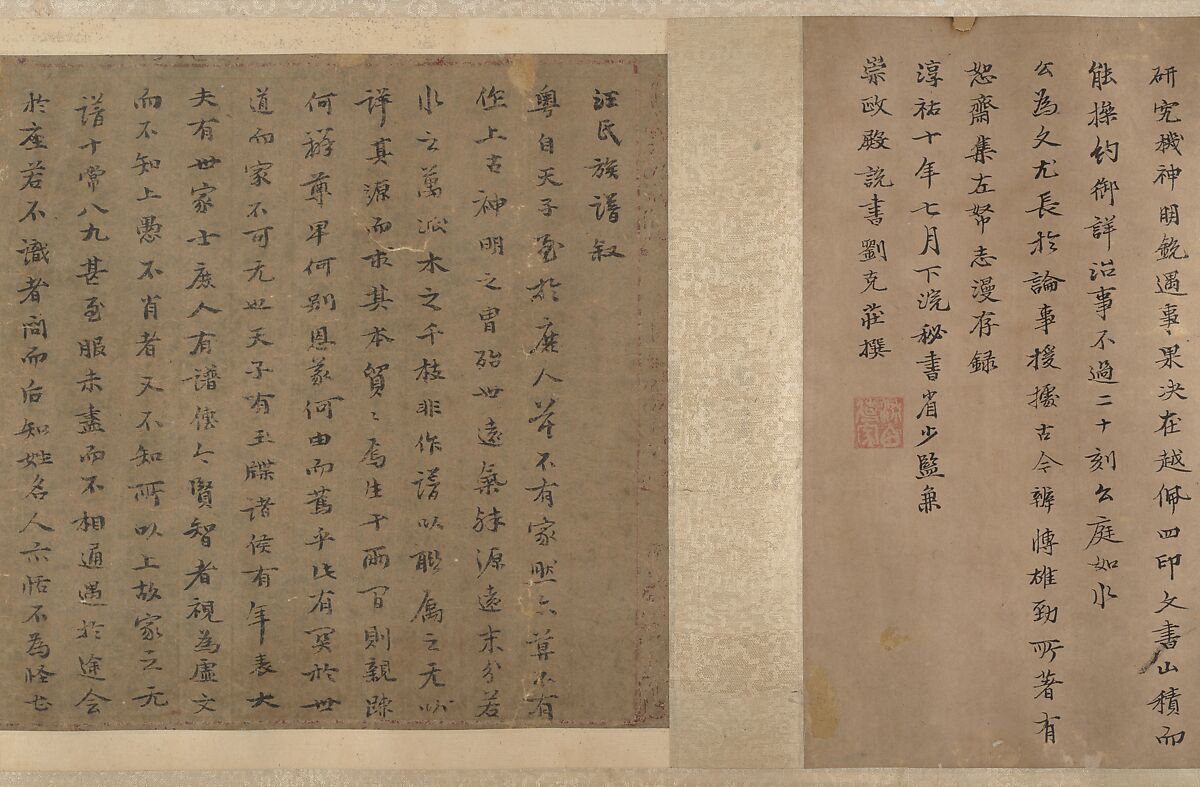 研究機神明銳遇事果决在越佩四印文書山積而
能操約御詳治事不過二十刻公庭如水
公為文尤長於論事援據古今辨博雄勁所著有
恕齋集左帑志漫存錄
淳祐十年七月下浣秘書省少監兼
崇政殿說書劉克莊撰
汪氏族譜叙
粵自天子至於庶人莫不有家然亦莫不有
作上古神明之冑殆世遠氣殊源遠末分若
水之萬派木之千枝非作譜以聯属之无以
詳其源而求其本貿貿焉生于両間則親踈
何辨尊卑何別恩義何由而篤乎此有関於世
道而家不可无也天子有玉牒諸侯有年表大
夫有世家士庶人有譜傳今賢智者視為虛文
而不知上愚不肖者又不知所以上故家之无
譜十常八九甚至服未盡而不相通遇於途会
於座若不識者問而后知姓名人亦恬不為怪也